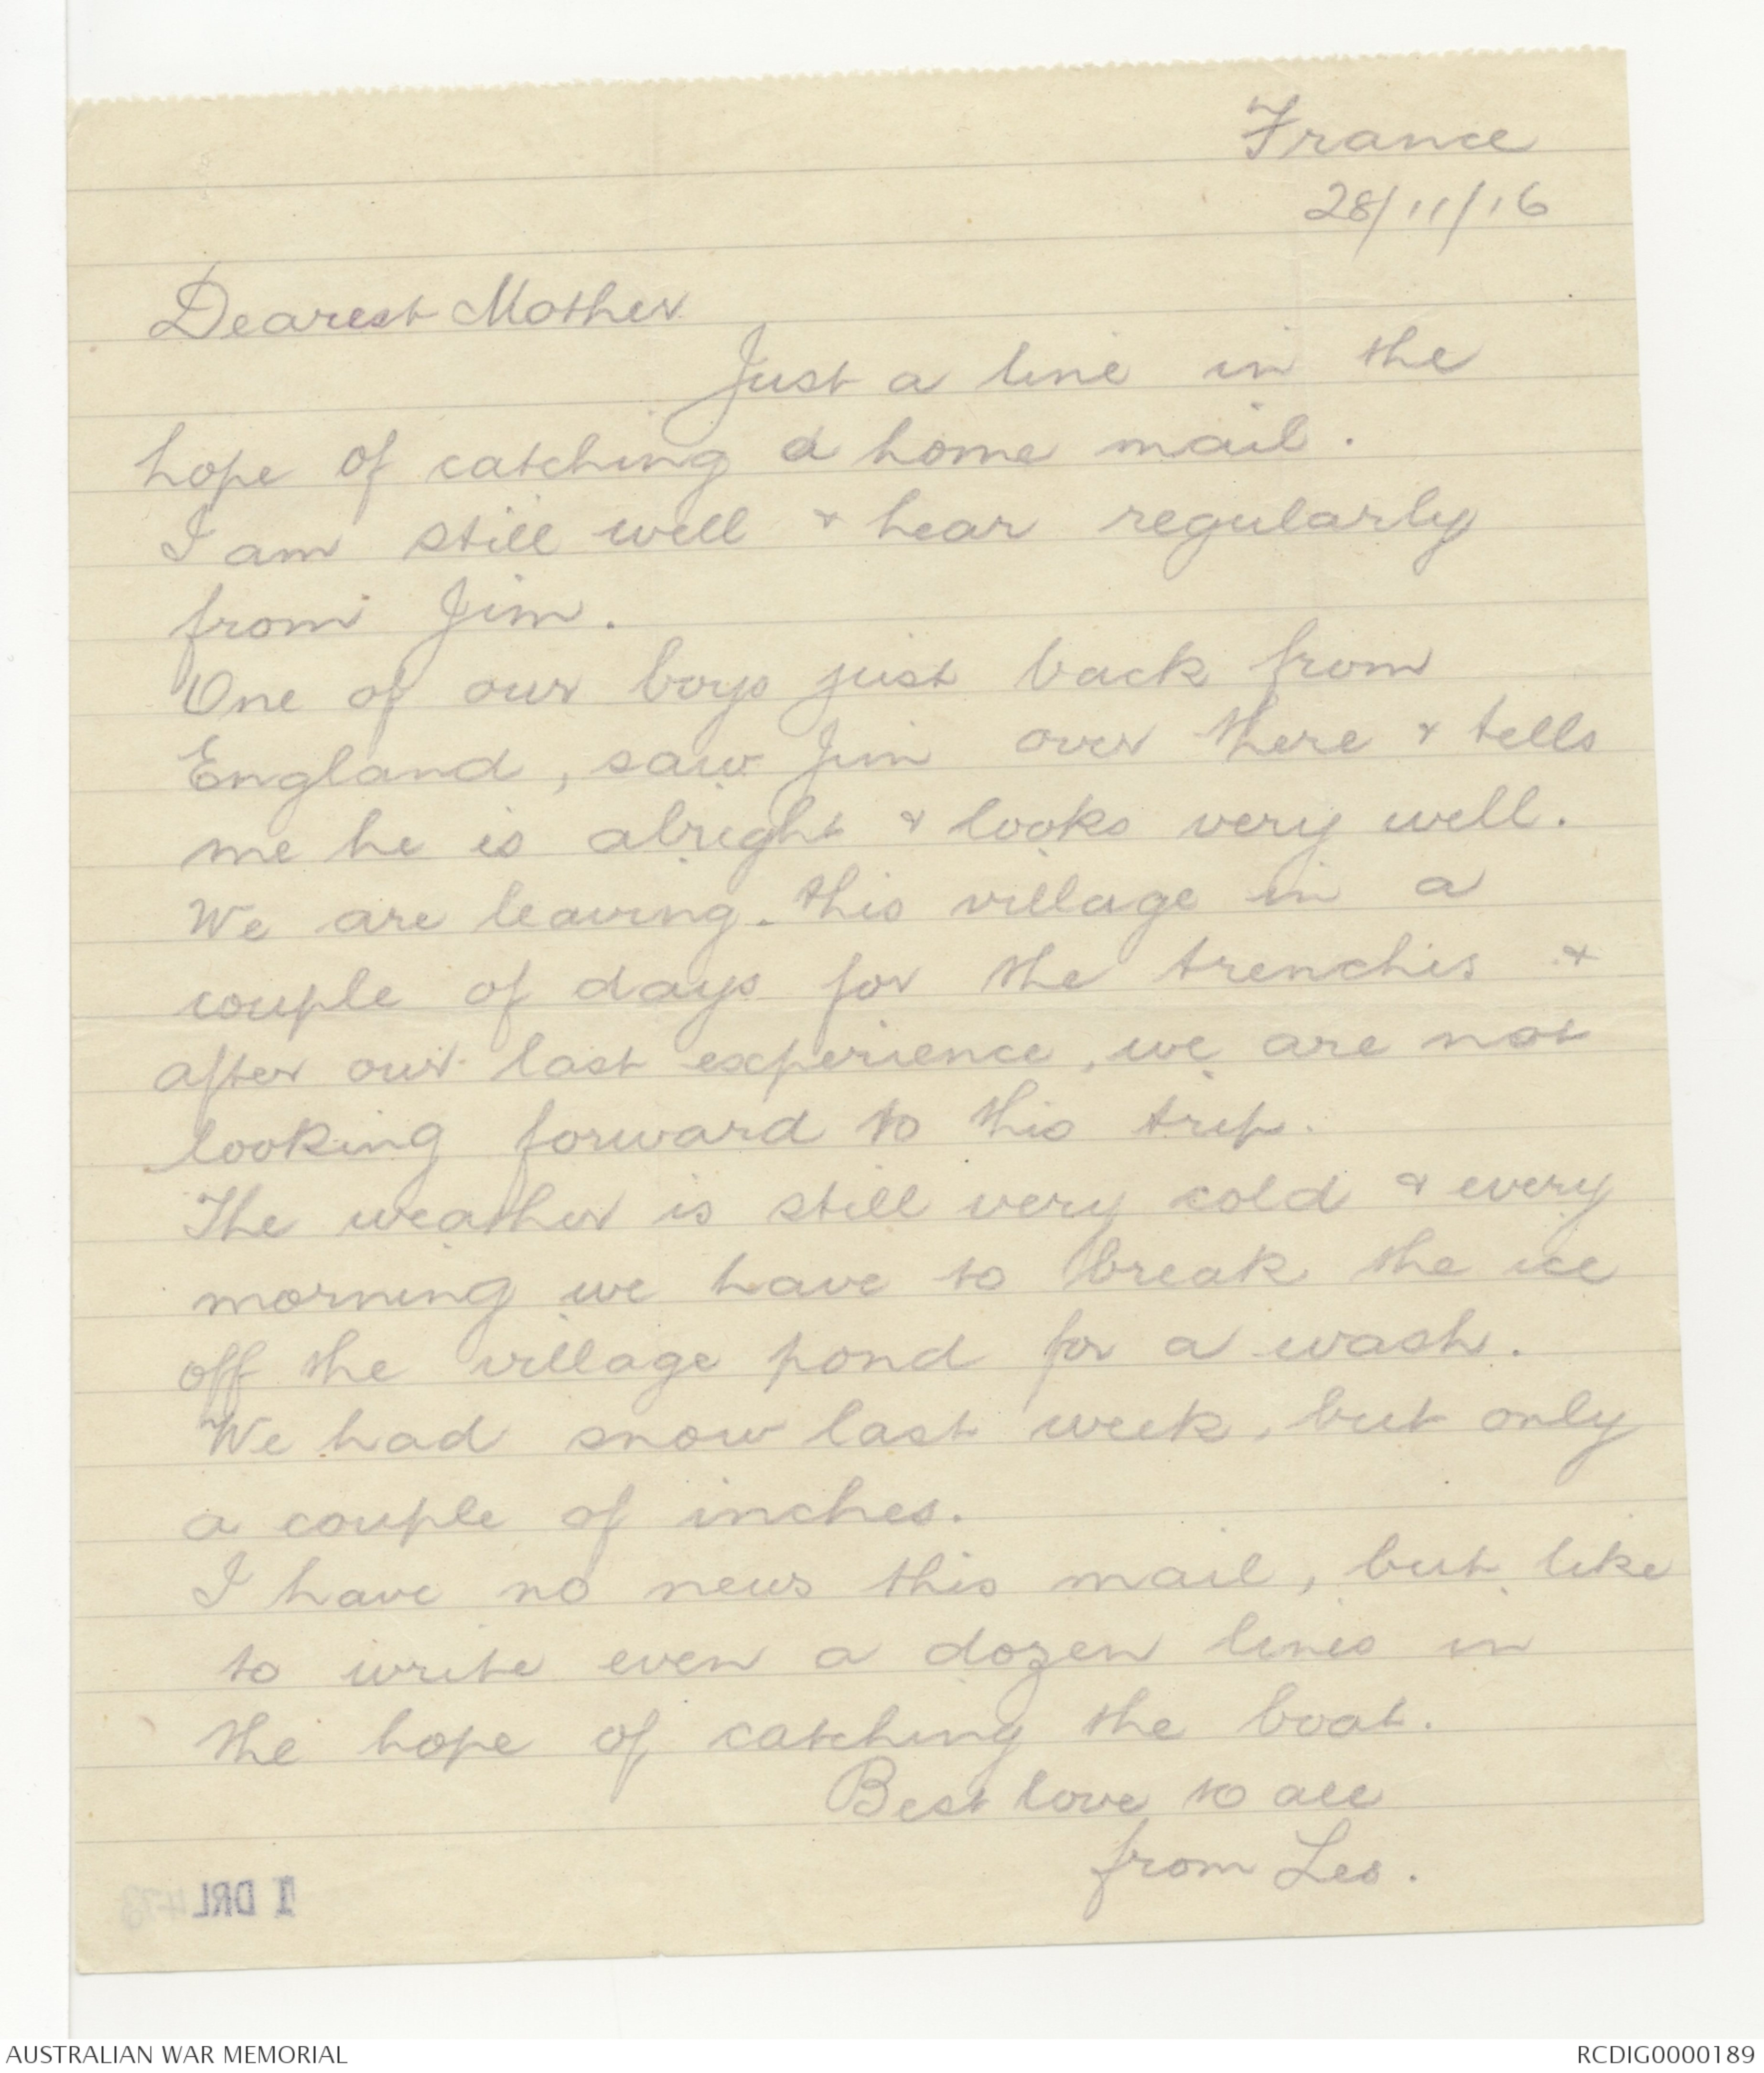 France
28/11/16
Dearest Mother
Just a line in the
hope of catching a home mail.
I am still well & hear regularly
from Jim.
One of our boys just back from
England, saw Jim over there & tells
me he is alright & looks very well.
We are leaving this village in a
couple of days for the trenches &
after our last experience, we are not
looking forward to this trip.
The weather is still very cold & every
morning we have to break the ice
off the village pond for a wash.
We had snow last week, but only
a couple of inches.
I have no news this mail, but like
to write even a dozen lines in
the hope of catching the boat.
Best love to all
from Les.
1 DRL 473
AUSTRALIAN WAR MEMORIAL
RCDIG0000189